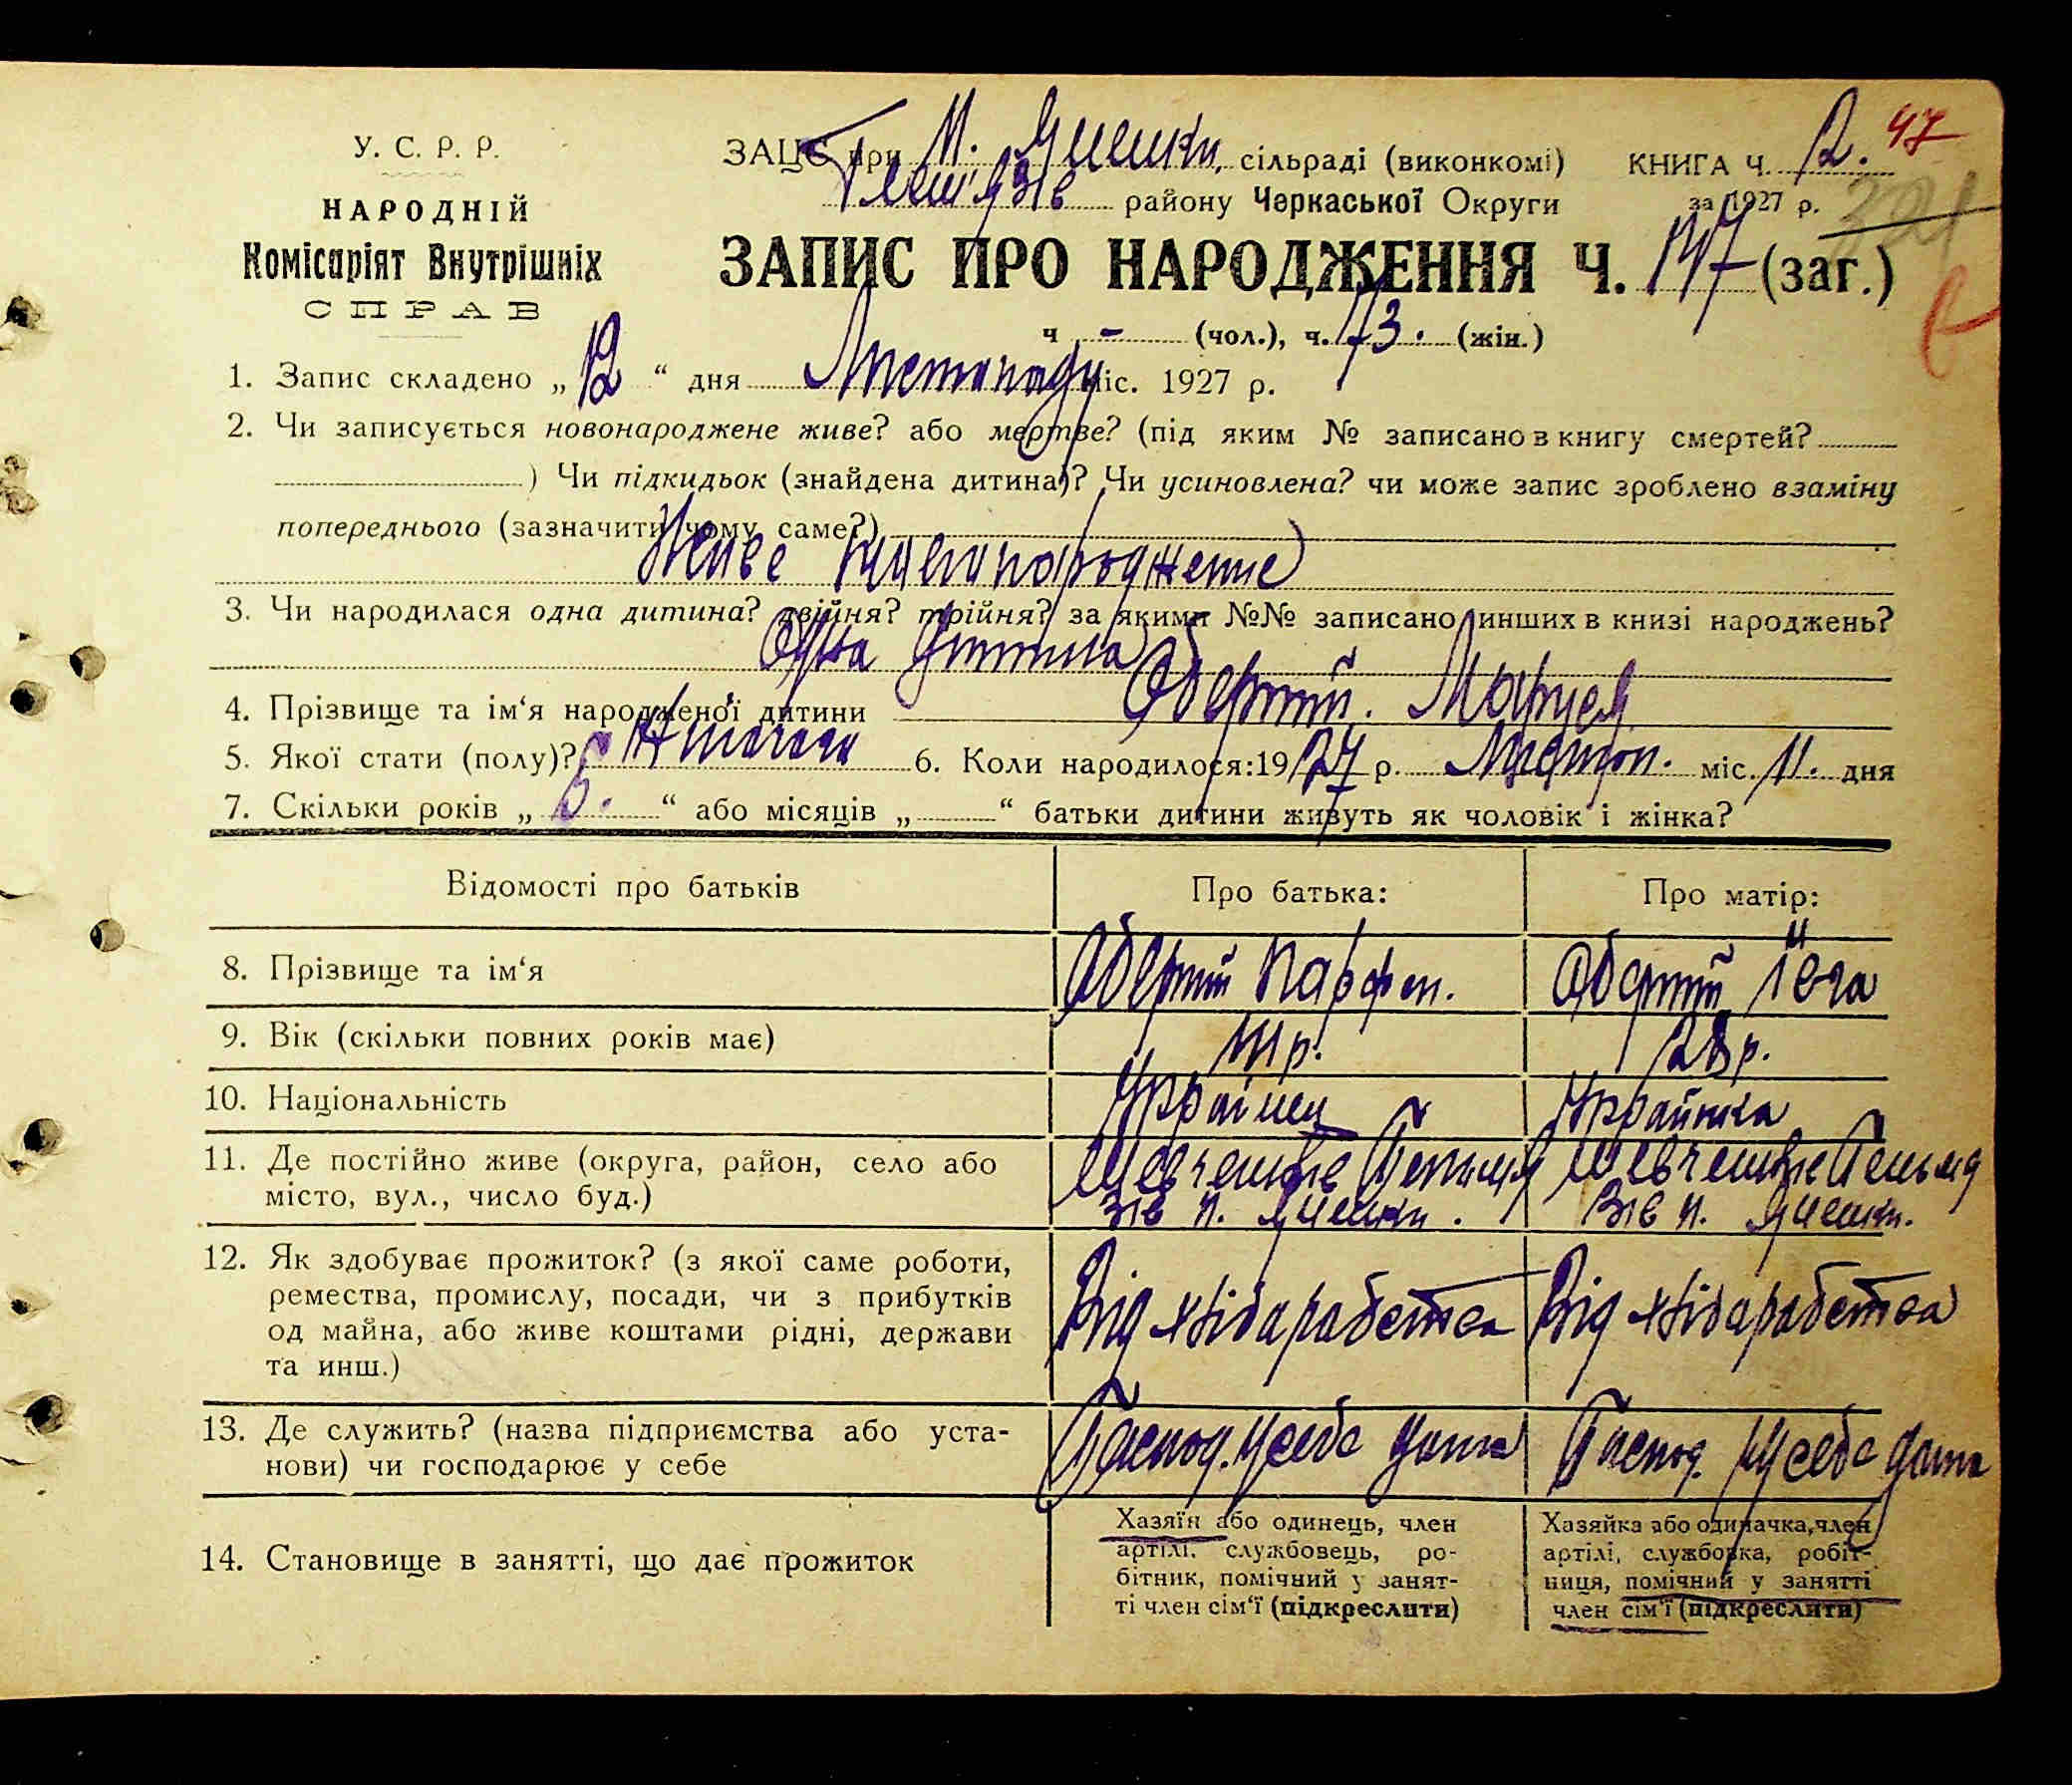 У. С. Р. Р.
НАРОДНІЙ
Комісаріят Внутрішніх
СПРАВ
ЗАЦС при сільраді (виконкомі)
району Черкаської Округи
КНИГА Ч. 2. 47
за 1927 р.
ЗАПИС ПРО НАРОДЖЕННЯ Ч. 147 (заг.)
ч - (чол.), ч. 73. (жін.)
1. Запис складено „ 12 “ дня Листопаду міс. 1927 р.
2. Чи записується новонароджене живе? або мертве? (під яким № записано в книгу смертей?
) Чи підкидьок (знайдена дитина)? Чи усиновлена? чи може запис зроблено взаміну
попереднього (зазначити чому саме?)
Живе
3. Чи народилася одна дитина? двійня? трійня? за якими №№ записано инших в книзі народжень?
Одна дитина
4. Прізвище та ім‘я народженої дитини Обертій. Маруся
5. Якої стати (полу)? Жіночої 6. Коли народилося: 1927 р. Листоп. міс. 11. дня
7. Скільки років „ 6. “ або місяців „ “ батьки дитини живуть як чоловік і жінка?
Відомості про батьків Про батька: Про матір:
8. Прізвище та ім‘я Обертій Парфен. Обертій
9. Вік (скільки повних років має) 28 р.
10. Національність Українец Українка
11. Де постійно живе (округа, район, село або
місто, вул., число буд.)
Шевченків Шевченків
12. Як здобуває прожиток? (з якої саме роботи,
ремества, промислу, посади, чи з прибутків
од майна, або живе коштами рідні, держави
та инш.)
Від хлібаработва Від хлібаработва
13. Де служить? (назва підприємства або уста-
нови) чи господарює у себе
Господ. у себе дома Господ. у себе дома
14. Становище в занятті, що дає прожиток
Хазяїн або одинець, член
артілі, службовець, ро-
бітник, помічний у занят-
ті член сім‘ї (підкреслити)
Хазяйка або одиначка, член
артілі, службовка, робіт-
ниця, помічний у занятті
член сім‘ї (підкреслити)